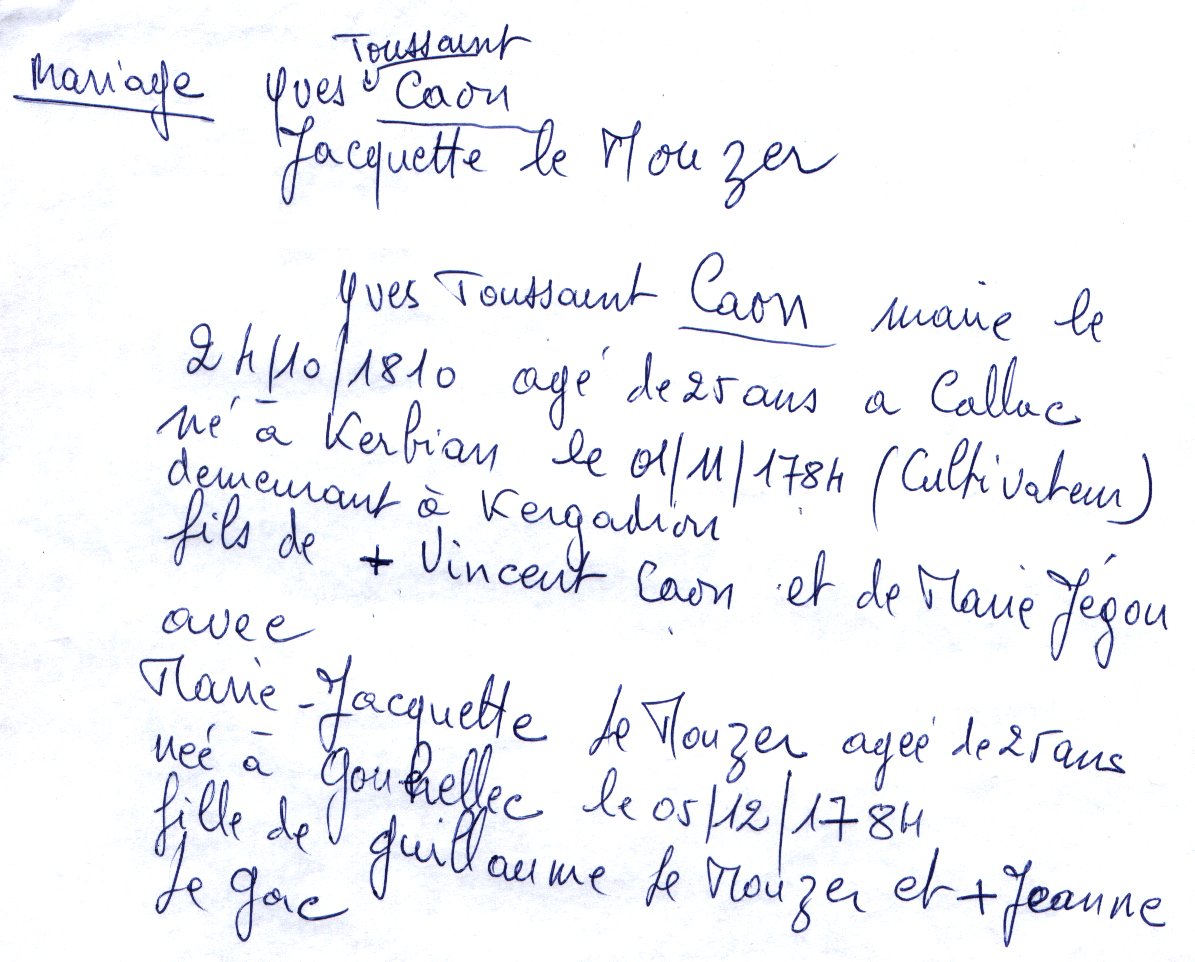 Toussaint
Mariage Yves Caon
Jacquette le Mouzer
Yves Toussaint Caon marie le
24/10/1810 agé de 25 ans a Callac
né à Kerbian le 01/11/1784 (Cultivateur)
demeurant à Kergadion
fils de + Vincent Caon et de Marie Jégou
avec
Marie-Jacquette Le Mouzer ageé de 25 ans
neé à Gouhellec le 05/12/1784
fille de Guillaume Le Mouzer et + Jeanne
Le Gac